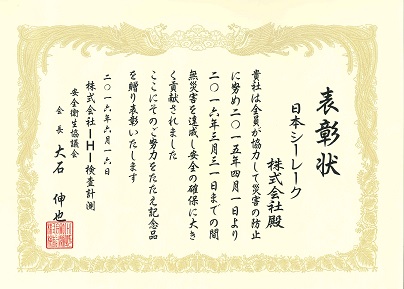 表彰状
日本シーレーク
株式会社殿
貴社は全員が協力して災害の防止
に努め二〇一五年四月一日より
二〇一六年三月三一日までの間
無災害を達成し安全の確保に大き
く貢献されました
ここにそのご努力をたたえ記念品
を贈り表彰いたします
二〇一六年六月一六日
株式会社IHI検査計測
安全衛生協議会
会長 大石 伸也